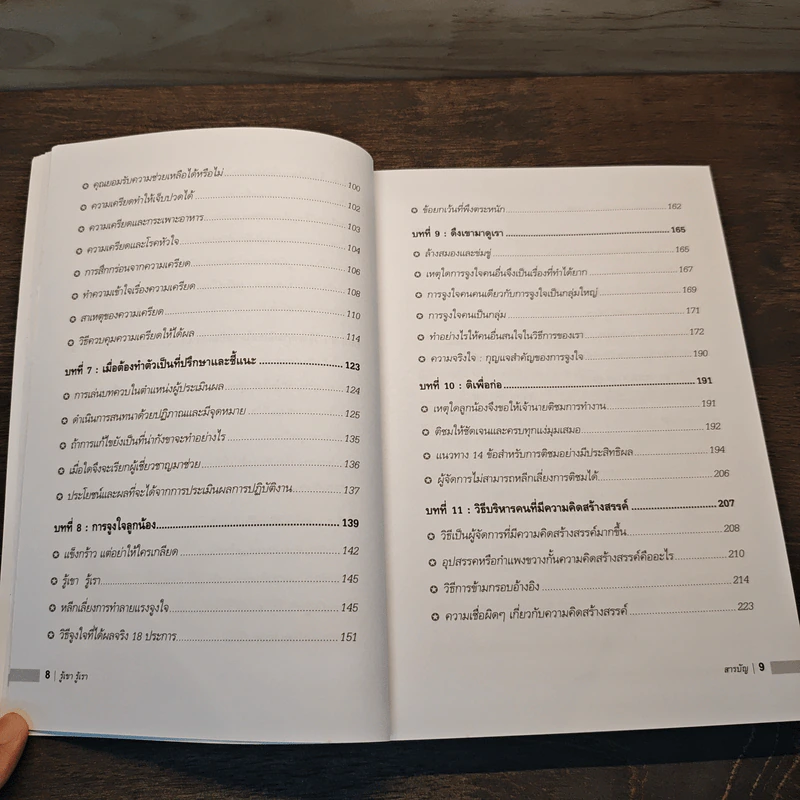 ✪ คุณยอมรับความช่วยเหลือได้หรือไม่ 100
✪ ความเครียดทำให้เจ็บปวดได้ 102
✪ ความเครียดและกระเพาะอาหาร 103
✪ ความเครียดและโรคหัวใจ 104
✪ การสึกกร่อนจากความเครียด 106
✪ ทำความเข้าใจเรื่องความเครียด 108
✪ สาเหตุของความเครียด 110
✪ วิธีควบคุมความเครียดให้ได้ผล 114
บทที่ 7 : เมื่อต้องทำตัวเป็นที่ปรึกษาและชี้แนะ 123
✪ การเล่นบทควบในตำแหน่งผู้ประเมินผล 124
✪ ดำเนินการสนทนาด้วยปฏิภาณและมีจุดหมาย 125
✪ ถ้าการแก้ไขยังเป็นที่น่ากังขาจะทำอย่างไร 135
✪ เมื่อใดจึงจะเรียกผู้เชี่ยวชาญมาช่วย 136
✪ ประโยชน์และผลที่จะได้จากการประเมินผลการปฏิบัติงาน 137
บทที่ 8 : การจูงใจลูกน้อง 139
✪ แข็งกร้าว แต่อย่าให้ใครเกลียด 142
✪ รู้เขา รู้เรา 145
✪ หลีกเลี่ยงการทำลายแรงจูงใจ 145
✪ วิธีจูงใจที่ได้ผลจริง 18 ประการ 151
8 | รู้เขา รู้เรา
✪ ข้อยกเว้นที่พึงตระหนัก 162
บทที่ 9 : ดึงเขามาดูเรา 165
✪ ล้างสมองและข่มขู่ 165
✪ เหตุใดการจูงใจคนอื่นจึงเป็นเรื่องที่ทำได้ยาก 167
✪ การจูงใจคนคนเดียวกับการจูงใจเป็นกลุ่มใหญ่ 169
✪ การจูงใจคนเป็นกลุ่ม 171
✪ ทำอย่างไรให้คนอื่นสนใจในวิธีการของเรา 172
✪ ความจริงใจ : กุญแจสำคัญของการจูงใจ 190
บทที่ 10 : ติเพื่อก่อ 191
✪ เหตุใดลูกน้องจึงขอให้เจ้านายติชมการทำงาน 191
✪ ติชมให้ชัดเจนและครบทุกแง่มุมเสมอ 192
✪ แนวทาง 14 ข้อสำหรับการติชมอย่างมีประสิทธิผล 194
✪ ผู้จัดการไม่สามารถหลีกเลี่ยงการติชมได้ 206
บทที่ 11 : วิธีบริหารคนที่มีความคิดสร้างสรรค์ 207
✪ วิธีเป็นผู้จัดการที่มีความคิดสร้างสรรค์มากขึ้น 208
✪ อุปสรรคหรือกำแพงขวางกั้นความคิดสร้างสรรค์คืออะไร 210
✪ วิธีการข้ามกรอบอ้างอิง 214
✪ ความเชื่อผิดๆ เกี่ยวกับความคิดสร้างสรรค์ 223
สารบัญ | 9